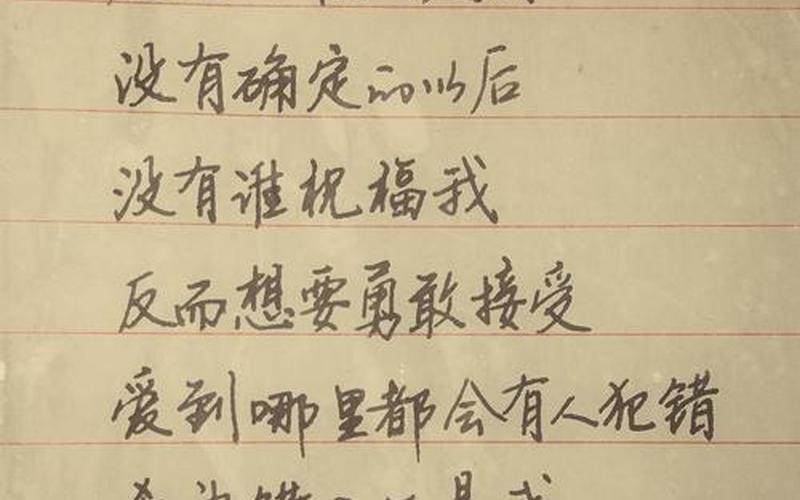 没有确定的以后
没有谁祝福我
反而想要勇敢接受
爱到哪里都会有人犯错